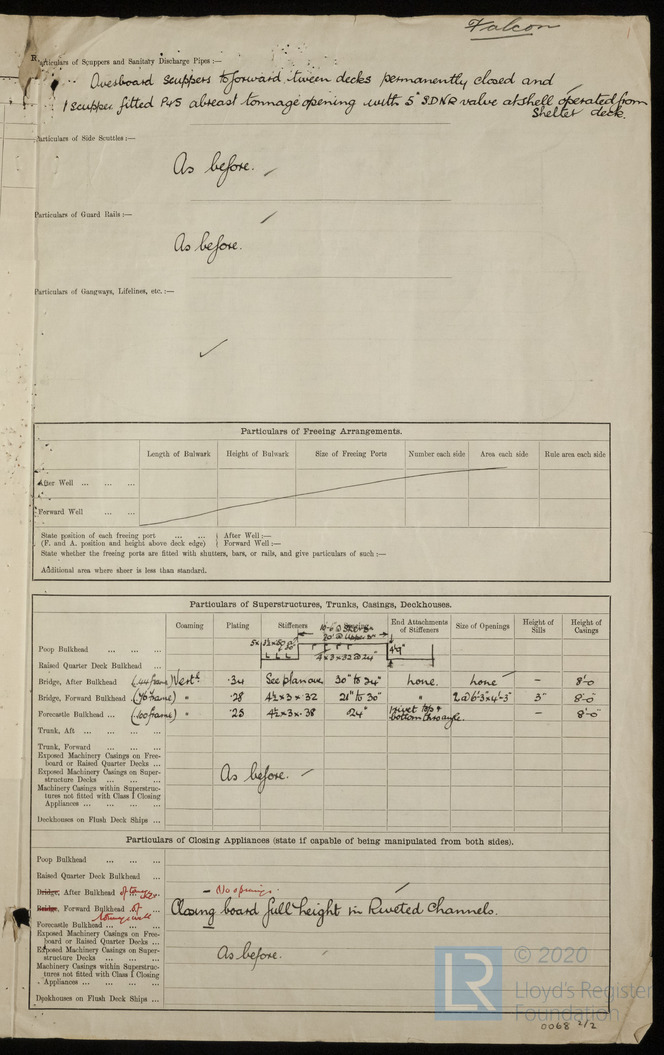 Falcon
Particulars of Scuppers and Sanitary Discharge Pipes :—
Overboard scuppers to forward 'tween decks permanently closed and
1 scupper fitted P&S abreast tonnage opening with 5" S.D.N.R valve at shell operated from
Shelter deck.
Particulars of Side Scuttles :—
As before.
Particulars of Guard Rails :—
As before.
Particulars of Gangways, Lifelines, etc. :—
Particulars of Freeing Arrangements.
Length of Bulwark Height of Bulwark Size of Freeing Ports Number each side Area each side Rule area each side
After Well ... ... ...
Forward Well ... ...
State position of each freing port ... ... } After Well :—
(F. and A. position and height above deck edge) } Forward Well :—
State whether the freeing ports are fitted with shutters, bars, or rails, and give particulars of such :—
Additional area where sheer is less than standard.
Particulars of Superstructures, Trunks, Casings, Deckhouses.
Coaming Plating Stiffeners Spacing End Attachments of Stiffeners Size of Openings Height of Sills Height of Casings
4 x 3 x 32 @ 24"
Poop Bulkhead ... ... ...
Raised Quarter Deck Bulkhead ...
Bridge, After Bulkhead (144 frame) .34 See plan above 30" to 24" none. none — 8'-0
Bridge, Forward Bulkhead (76 frame) " .28 4½ x 3 x .32 21" to 30" " 2 @ 6'-3" x 4'-3" 3" 8'-0"
Forecastle Bulkhead ... (100 frame) " .25 4½ x 3 x .38 24" rivet tops & bottom thro angle. — 8'-0"
Trunk, Aft ... ... ... ...
Trunk, Forward ... ... ...
Exposed Machinery Casings on Free-
board or Raised Quarter Decks ...
Exposed Machinery Casings on Super-
structure Decks ... ... ...
As before.
Machinery Casings within Superstruc-
tures not fitted with Class I Closing
Appliances ... ... ... ...
Deckhouses on Flush Deck Ships ...
Particulars of Closing Appliances (state if capable of being manipulated from both sides).
Poop Bulkhead ... ... ...
Raised Quarter Deck Bulkhead ...
Bridge, After Bulkhead — No openings.
Bridge, Forward Bulkhead of Closing board full height in Riveted Channels.
Forecastle Bulkhead ... ... ...
Exposed Machinery Casings on Free-
board or Raised Quarter Decks ...
Exposed Machinery Casings on Super-
structure Decks ... ... ...
As before.
Machinery Casings within Superstruc-
tures not fitted with Class I Closing
Appliances ... ... ... ...
Deckhouses on Flush Deck Ships ...
© 2020
LR
Lloyd's Register
Foundation
0068 2/2